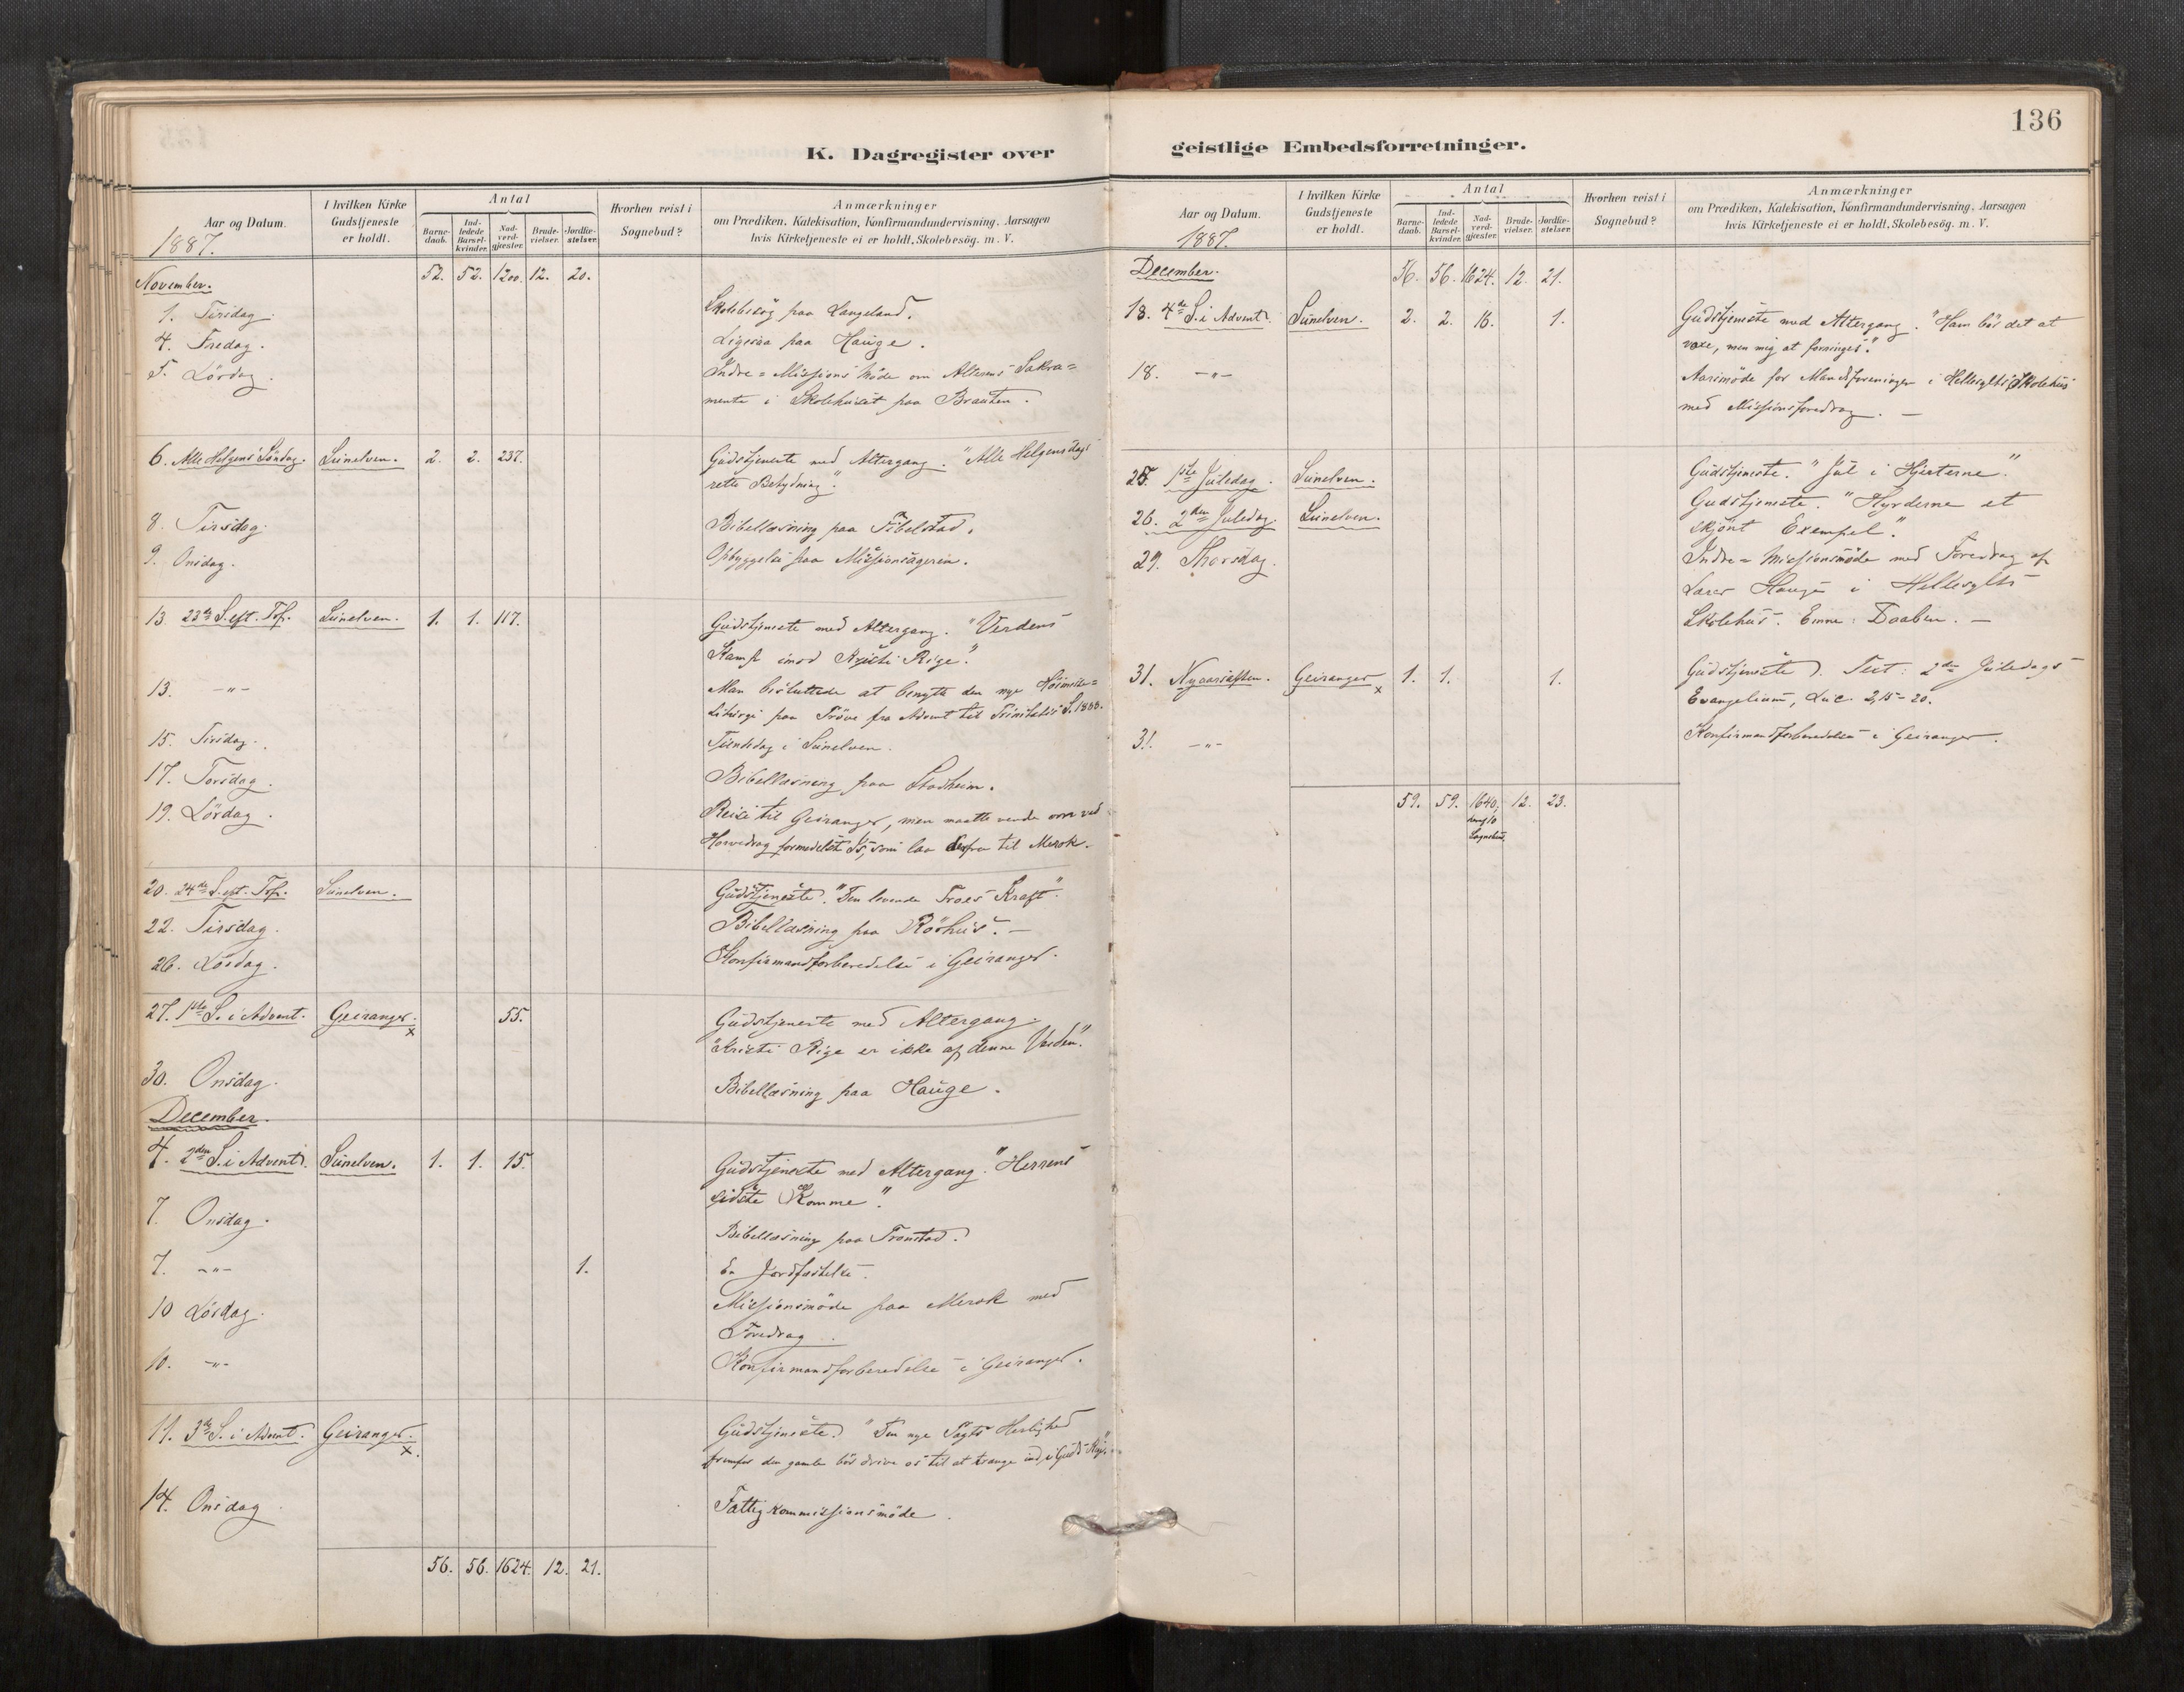 136
K. Dagregister over
Aar og Datum.
1887.
I hvilken Kirke Gudstjeneste er holdt.
Antal
Barne-daab.
Ind-ledede Barsel-kvinder.
Nad-verd-gjæster.
Brude-vielser.
Jordfæ-stelser.
Hvorhen reist i Sognebud?
Anmærkninger
om Prædiken, Katekisation, Konfirmandundervisning, Aarsagen
hvis Kirketjeneste ei er holdt, Skolebesøg. m. V.
November. 52. 52. 1200. 12. 20.
1. Tirsdag. Skolebesøg paa Langeland.
4. Fredag. Ligesaa paa Hauge.
5. Lördag. Indre-Missionsmöde om Alterens Sakra=
mente i Skolehuset paa Brauten.
6. Alle Helgens Söndag. Sunelven. 2. 2. 237. Gudstjeneste med Altergang. "Alle Helgensdags
rette Betydning."
8. Tirsdag. Bibellæsning paa Tibelstad.
9. Onsdag. Opbyggelse paa
13. 23de S. eft. Tof. Sunelven. 1. 1. 117. Gudstjeneste med Altergang. "Verdens
Kamp imod Kristi Rige."
13. -"- Man besluttede at benytte den nye Höimesse=
Liturgi paa Pröve fra Advent til Trinitatis S. 1888.
15. Tirsdag. Tiendedag i Sunelven.
17. Torsdag. Bibellæsning paa Stadheim.
19. Lördag. Reise til Geiranger, men maatte vende om ved
Horvedrag formedelst Is, som laa derfra til Merok.
20. 24de S. eft. Tof. Sunelven. Gudstjeneste. "Den levende Troes Kraft".
22. Tirsdag. Bibellæsning paa Röshus. -
26. Lördag. Konfirmandforberedelse i Geiranger.
27. 1ste S. i Advent. Geiranger. x 55. Gudstjeneste med Altergang.
"Kristi Rige er ikke af denne Verden."
30. Onsdag. Bibellæsning paa Hauge.
December.
4. 2den S. i Advent. Sunelven. 1. 1. 15. Gudstjeneste med Altergang. "Herrens
sidste Komme".
7. Onsdag. Bibellæsning paa Tronstad.
7. -"- 1. En Jordfæstelse.
10 Lördag. Missionsmöde paa Merok med
Foredrag.
10. -"- Konfirmandforberedelse i Geiranger.
11. 3de S. i Advent. Geiranger. x. Gudstjeneste. "Den nye Pagts Herlighed
fremfor den gamle bör drive os til at trænge ind i Guds Rige."
14. Onsdag. Fattigkommissionsmöde.
56. 56. 1624. 12. 21.
geistlige Embedsforretninger.
Aar og Datum.
1887.
I hvilken Kirke Gudstjeneste er holdt.
Antal
Barne-daab.
Ind-ledede Barsel-kvinder.
Nad-verd-gjæster.
Brude-vielser.
Jordfæ-stelser.
Hvorhen reist i Sognebud?
Anmærkninger
om Prædiken, Katekisation, Konfirmandundervisning, Aarsagen
hvis Kirketjeneste ei er holdt, Skolebesøg. m. V.
December. 56. 56. 1624. 12. 21.
18. 4de S. i Advent. Sunelven. 2. 2. 16. 1. Gudstjeneste med Altergang. "Ham bör det at
voxe, men mig at forringes."
18. -"- Aarsmöde for Mandsforeningen i Hellesylts Skolehus
med Missionsforedrag. -
25. 1ste Juledag. Sunelven. Gudstjeneste. "Jul i Hjerterne".
26. 2den Juledag. Sunelven. Gudstjeneste. "Hyrderne et
skjönt Exempel".
29. Thorsdag. Indre-Missionsmöde med Foredrag af
Lærer Hauge i Hellesylts
Skolehus. Emne: Daaben. -
31. Nyaarsaften. Geiranger x 1. 1. 1. Gudstjeneste. Text: 2den Juledags
Evangelium, Luc. 2,15-20.
31. -"- Konfirmandforberedelse i Geiranger.
59. 59. 1640. 12. 23.